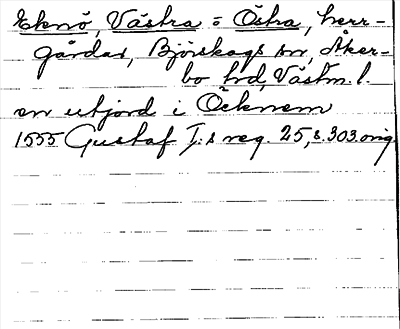 Eknö, Västra o Östra, herr-
gårdar, Björskogs sn, Åker-
bo hd, Västm. l.
en utjord i Öcknem
1555 Gustaf I:s reg. 25, s. 303. orig.